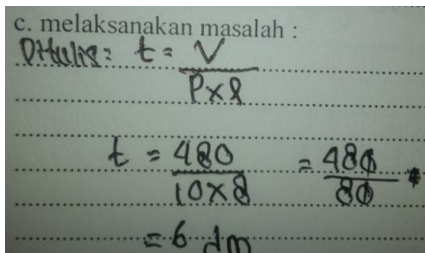 c. melaksanakan masalah :
Ditulis: t = V
P x l
t = 480 = 480
10x8 80
= 6 dm